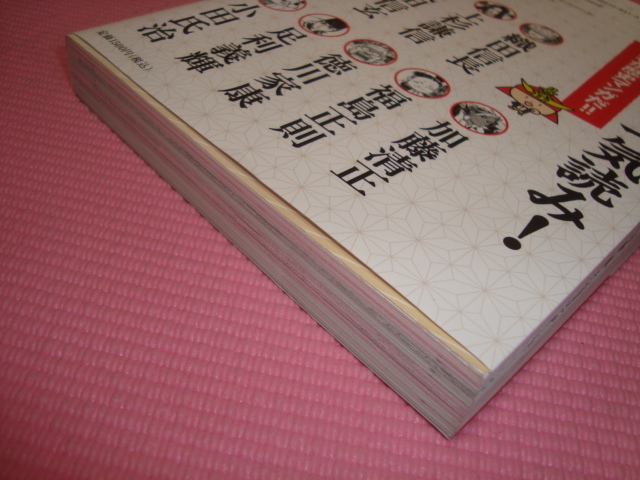 気読み!
織田信長
上杉謙信
田信玄
加藤清正
福島正則
徳川家康
足利義輝
小田氏治